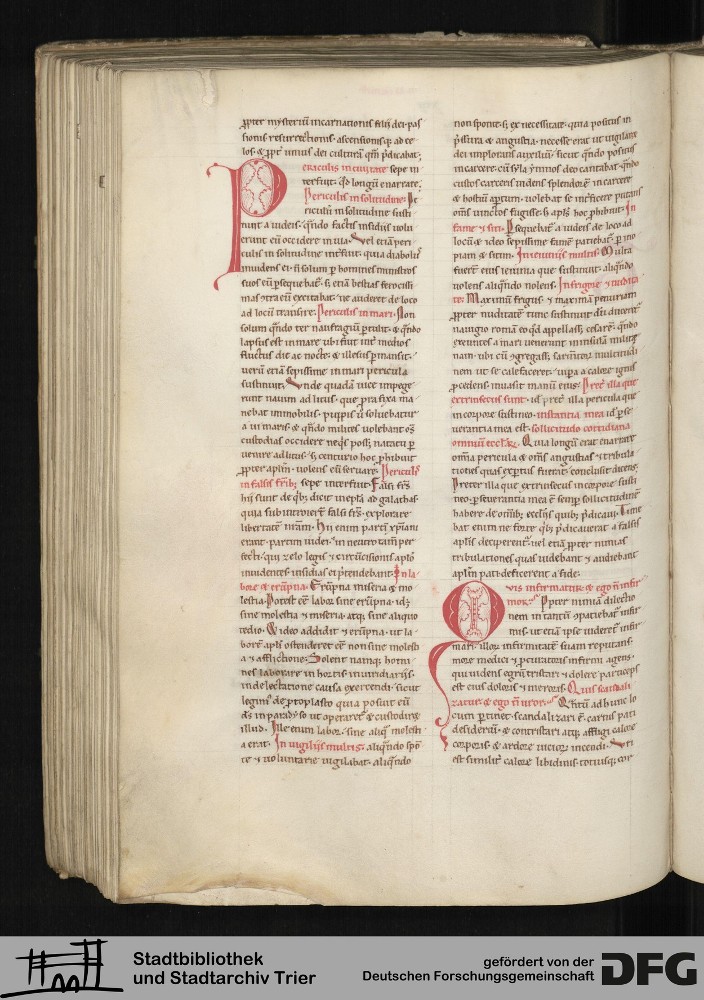 ꝓpter mysteriū incarnationis filii dei pas
sionis resurrectionis ascensionisq; ad ce
los
Periculis in ciuitate sepe in
terfuit qd longū ē enarrare
Periculis in solitudine Pe
riculū in solitudine susti
nuit a iudeis qndo factis insidiis uolu
erunt eū occidere in uia Vel etiā peri
culis in solitudine int̄fuit quia diabolus
inuidens ei n̄ solum p homines ministros
suos eū psequebat s; etiā bestias ferocissi
mas 9tra eū excitabat ne auderet de loco
ad locū transire Periculis in mari Non
solum qndo ter naufragiū ptulit & qndo
lapsus est in mare ubi fuit int̄ medios
fluctus die ac nocte & illesus pmansit
uerū etiā sepissime in mari pericula
sustinuit Vnde quadā uice impege
runt nauim ad litus que prora fixa ma
nebat immobilis puppis ū soluebatur
a ui maris & qndo milites uolebant os̄
custodias occidere
uenire ad litus s; centurio hoc phibuit
ꝓpter aplm uolens eū seruare Periculis
in falsis frib; sepe interfuit Falsi frs̄
hii sunt de qb; dicit in epla ad galathas
quia subintroierūt falsi frs̄ explorare
libertatē nr̄am Hii enim partī xp̄iani
erant partim iudei in neutro tam̄ per
fecti qui zelo legis & circūcisionis aplo
inuidentes insidias ei p̄tendebant In la
bore & erūpna Erūpna miseria & mo
lestia Potest eē labor sine erūpna idē
sine molestia & miseria atq; sine aliquo
tedio & ideo addidit & erūpna ut la
borē apls ostenderet eē non sine molesti
a & afflictione Solent namq; homi
nes laborare in hortis in uiridariis
in delectatione causa exercendi sicut
legim' de ꝓtoplasto quia posuit eū
ds̄ in paradyso ut operaret & custodiret
illud Ille enim labor sine aliq molesti
a erat In uigiliis multis aliqndo spō
te & uoluntarie uigilabat aliqndo
non sponte s; ex necessitate quia positus in
p̄ssura & angustia necesse erat ut uigilans
dei imploraret auxiliū sicut qndo positus
in carcere cū syla ymnos deo cantabat qndo
custos carceris uidens splendorē in carcere
& hostiū aptum uolebat se int̄ficere putans
om̄s uinctos fugisse s; apls hoc phibuit In
fame & siti Psequebat a iudeis de loco ad
locū & ideo sepissime famē patiebat p ino
piam & sitim In ieiuniis multis Multa
fuer̄t eius ieiunia que sustinuit aliqndo
uolens aliqndo nolens In frigore & nudita
te Maximū frigus & maximā penuriam
ꝓpter nuditatē tunc sustinuit
nauigio romā eo qd appellasset cesarē qndo
exeuntes a mari uenerunt in insulā militi
nam ubi cū 9gregasset sarm̄torū multitudi
nem ut se calefaceret uipa a calore ignis
ꝓcedens inuasit manū eius Pret illa que
extrinsecus sunt id pret illa pericula que
in corpore sustineo instantia mea id pse
uerantia mea est sollicitudo cottidiana
omniū eccl̄arū Quia longū erat enarrare
omnia pericula & om̄s angustias & tribula
tiones quas exptus fuerat conclusit dicens
Preter illa que extrinsecus in corpore susti
neo pseuerantia mea ē semp sollicitudinē
habere de om̄ib; ecclesiis quib; p̄dicaui Time
bat enim ne forte qb; p̄dicauerat a falsis
aplis deciperent uel etiā ꝓpter nimias
tribulationes quas uidebant & audiebant
aplm pati deficerent a fide
Quis infirmatur & ego n̄ infir
mor Ppter nimiā dilectio
nem in tantū 9patiebat infir
mis ut etiā ipse uideret infir
mari illor infirmitatē suam reputans
more medici & ꝓcuratoris infirmi agens
qui uidens egrū tristari & dolere particeps
est eius doloris & meroris Quis scandali
zatur & ego n̄ uror Qntū ad hunc lo
cum ptinet scandalizari ē carnis pati
desideriū & contristari atq; affligi calore
corporis & ardore uitior incendi Vri
est similit calore libidinis totiusq; cor
Stadtbibliothek
und Stadtarchiv Trier
gefördert von der
Deutschen Forschungsgemeinschaft
DFG